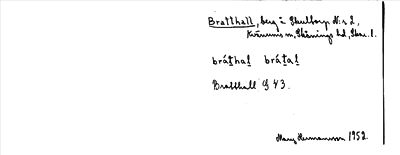 Bratthall, berg i Skulltorp N:r 2,
Kärnums sn, Skånings hd, Skar. l.
bráṭhaḷ bráṭaḷ
Bratthall G 43.
Harry Hermansson 1952.